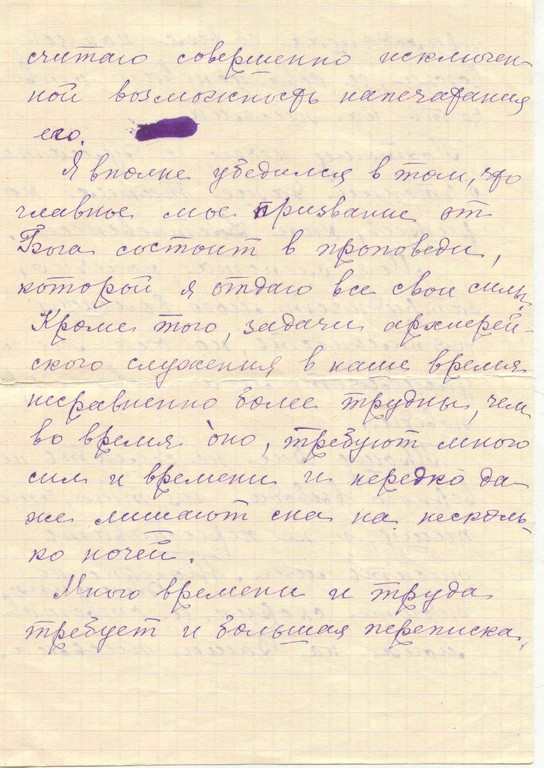 считаю совершенно исключен-
ной возможность напечатания
его.
Я вполне убедился в том, что
главное мое призвание от
Бога состоит в проповеди,
которой я отдаю все свои силы.
Кроме того, задачи архиерей-
ского служения в наше время
несравненно более трудны, чем
во время оно, требуют много
сил и времени и нередко да-
же лишают сна на несколь-
ко ночей.
Много времени и труда
требует и большая переписка,